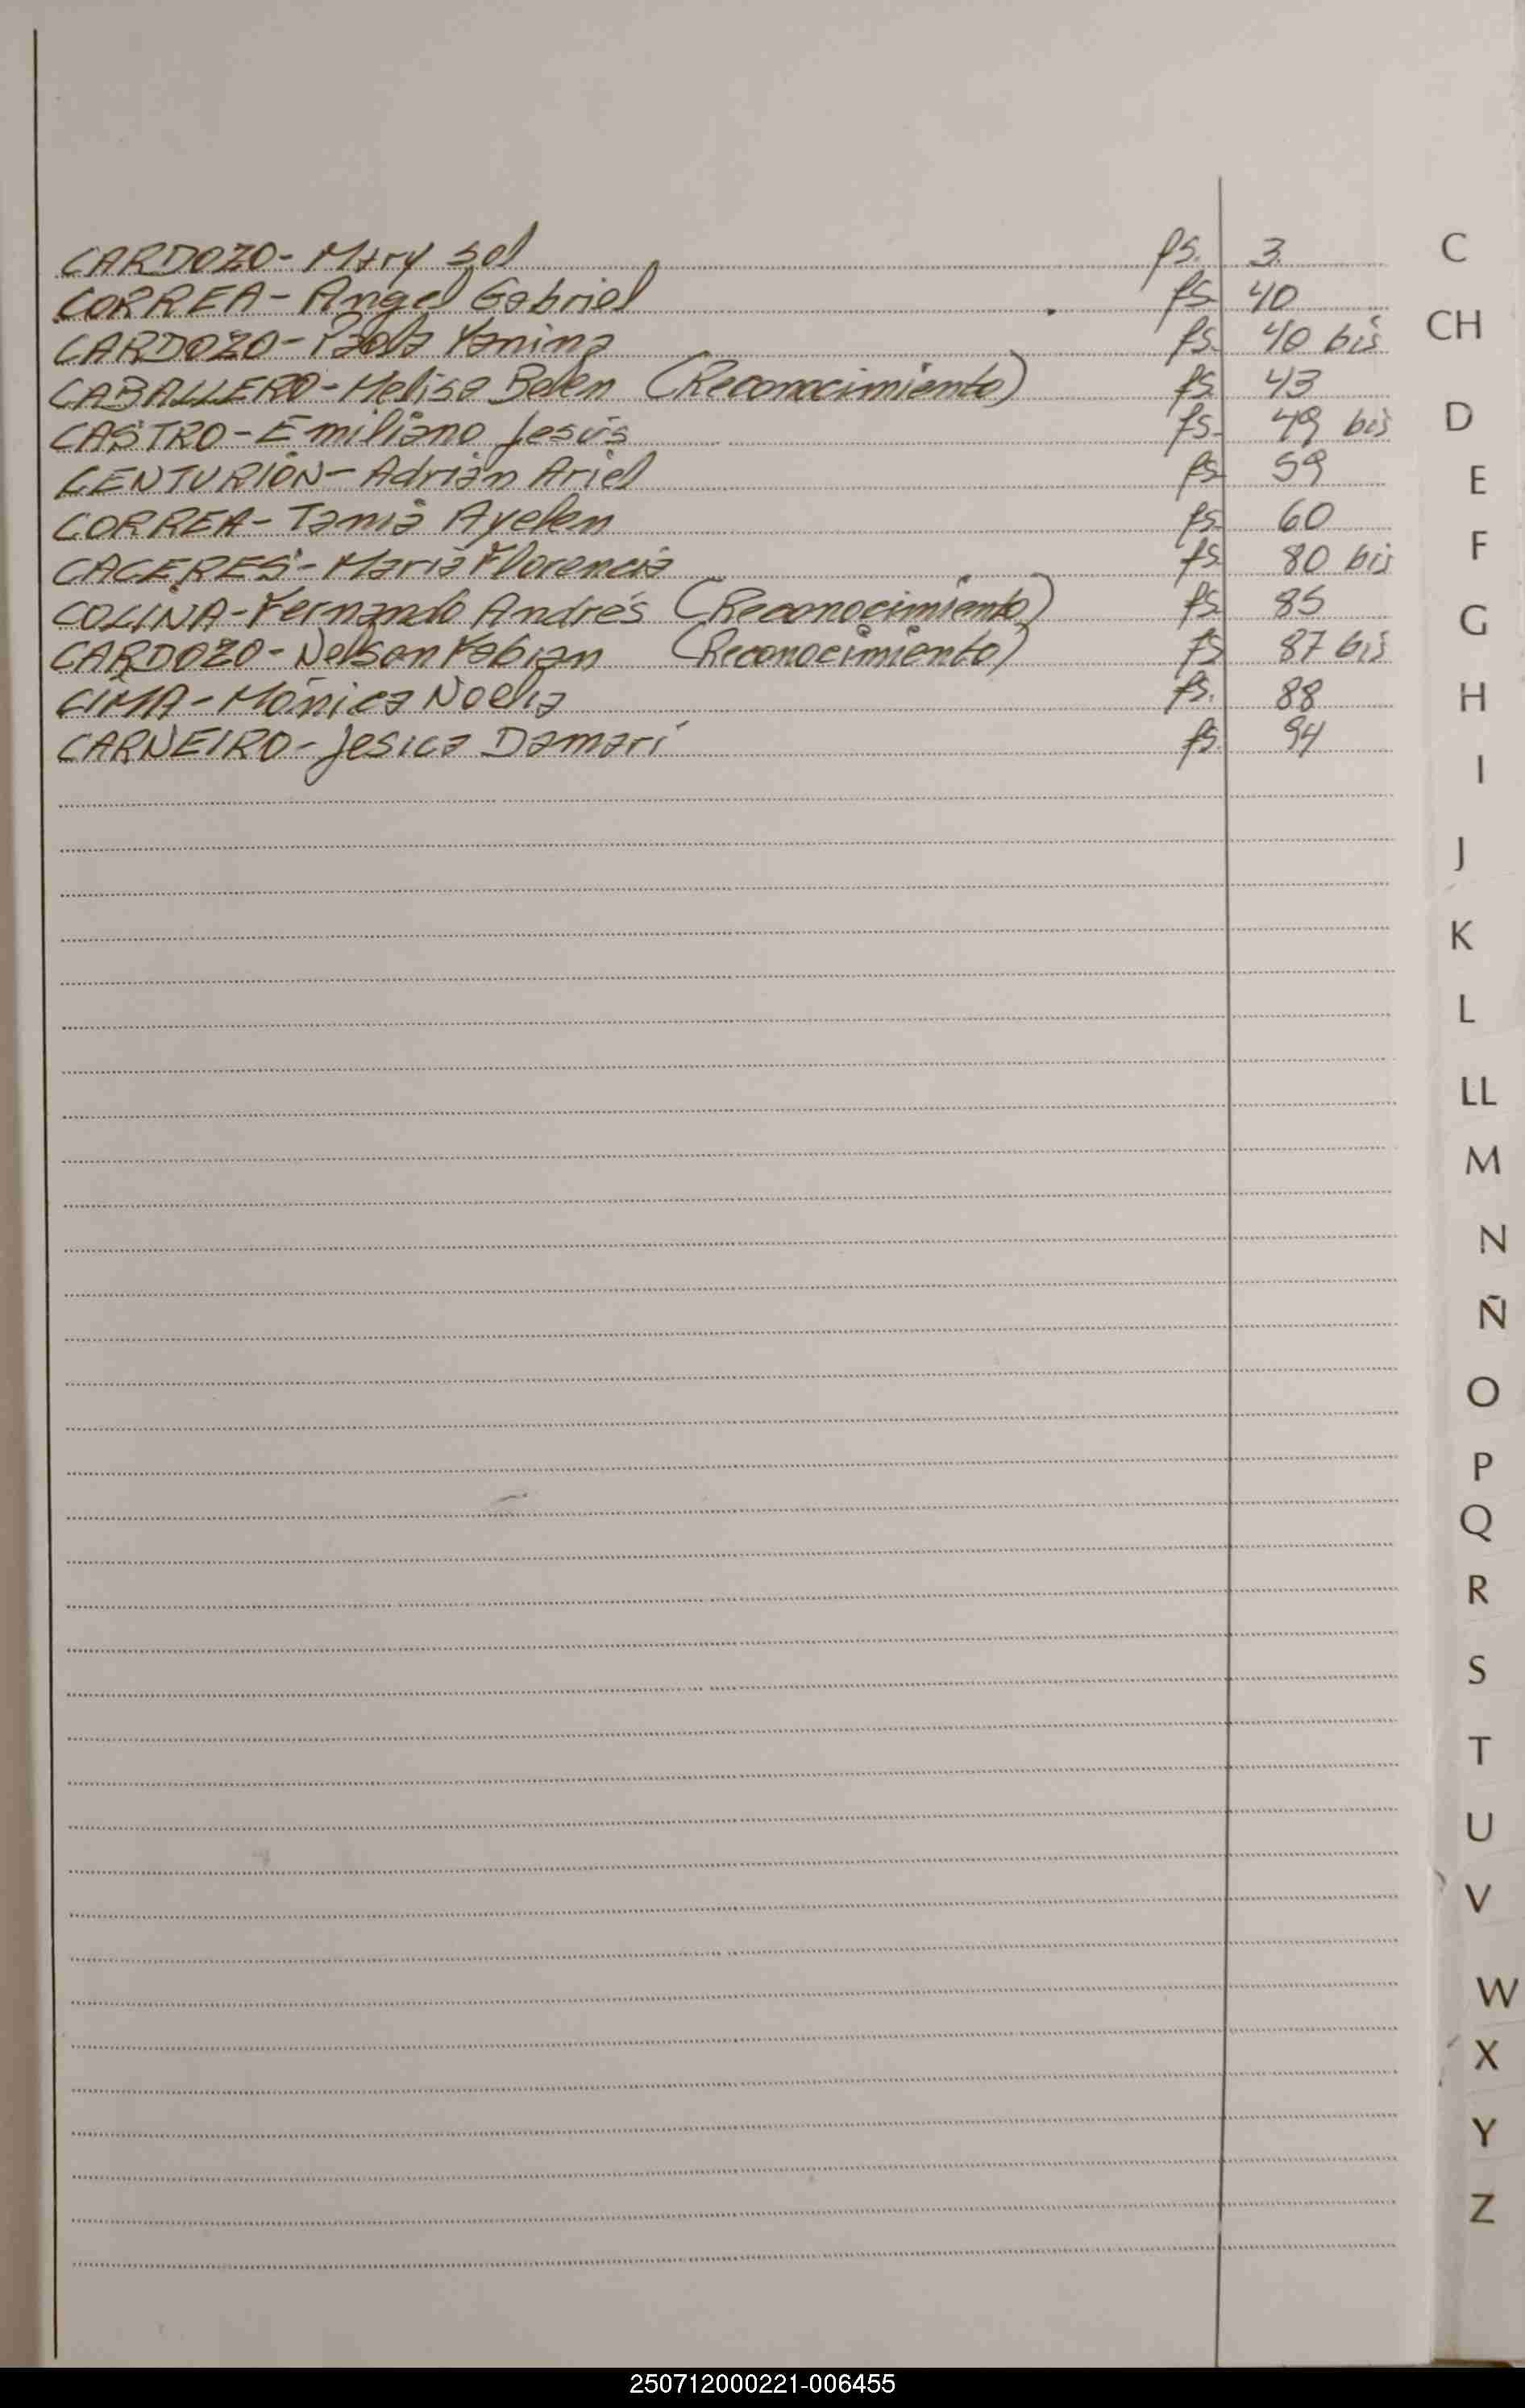 CARDOZO - Mary Sol fs. 3.
CORREA - Angel Gabriel fs. 40
CARDOZO - Paola Yanina fs. 40 bis
CABALLERO - Melisa Belen (Reconocimiento) fs. 43
CASTRO - Emiliano Jesús fs. 49 bis
CENTURIÓN - Adrián Ariel fs. 59
CORREA - Tania Ayelen fs. 60
CACERES - Maria Florencia fs. 80 bis
COLINA - Fernando Andrés (Reconocimiento) fs. 85
CARDOZO - Nelson Fabian (Reconocimiento) fs 87 bis
CIMA - Mónica Noelia fs. 88
CARNEIRO - Jesica Damarí fs. 94
C
CH
D
E
F
G
H
I
J
K
L
LL
M
N
Ñ
O
P
Q
R
S
T
U
V
W
X
Y
Z
250712000221-006455